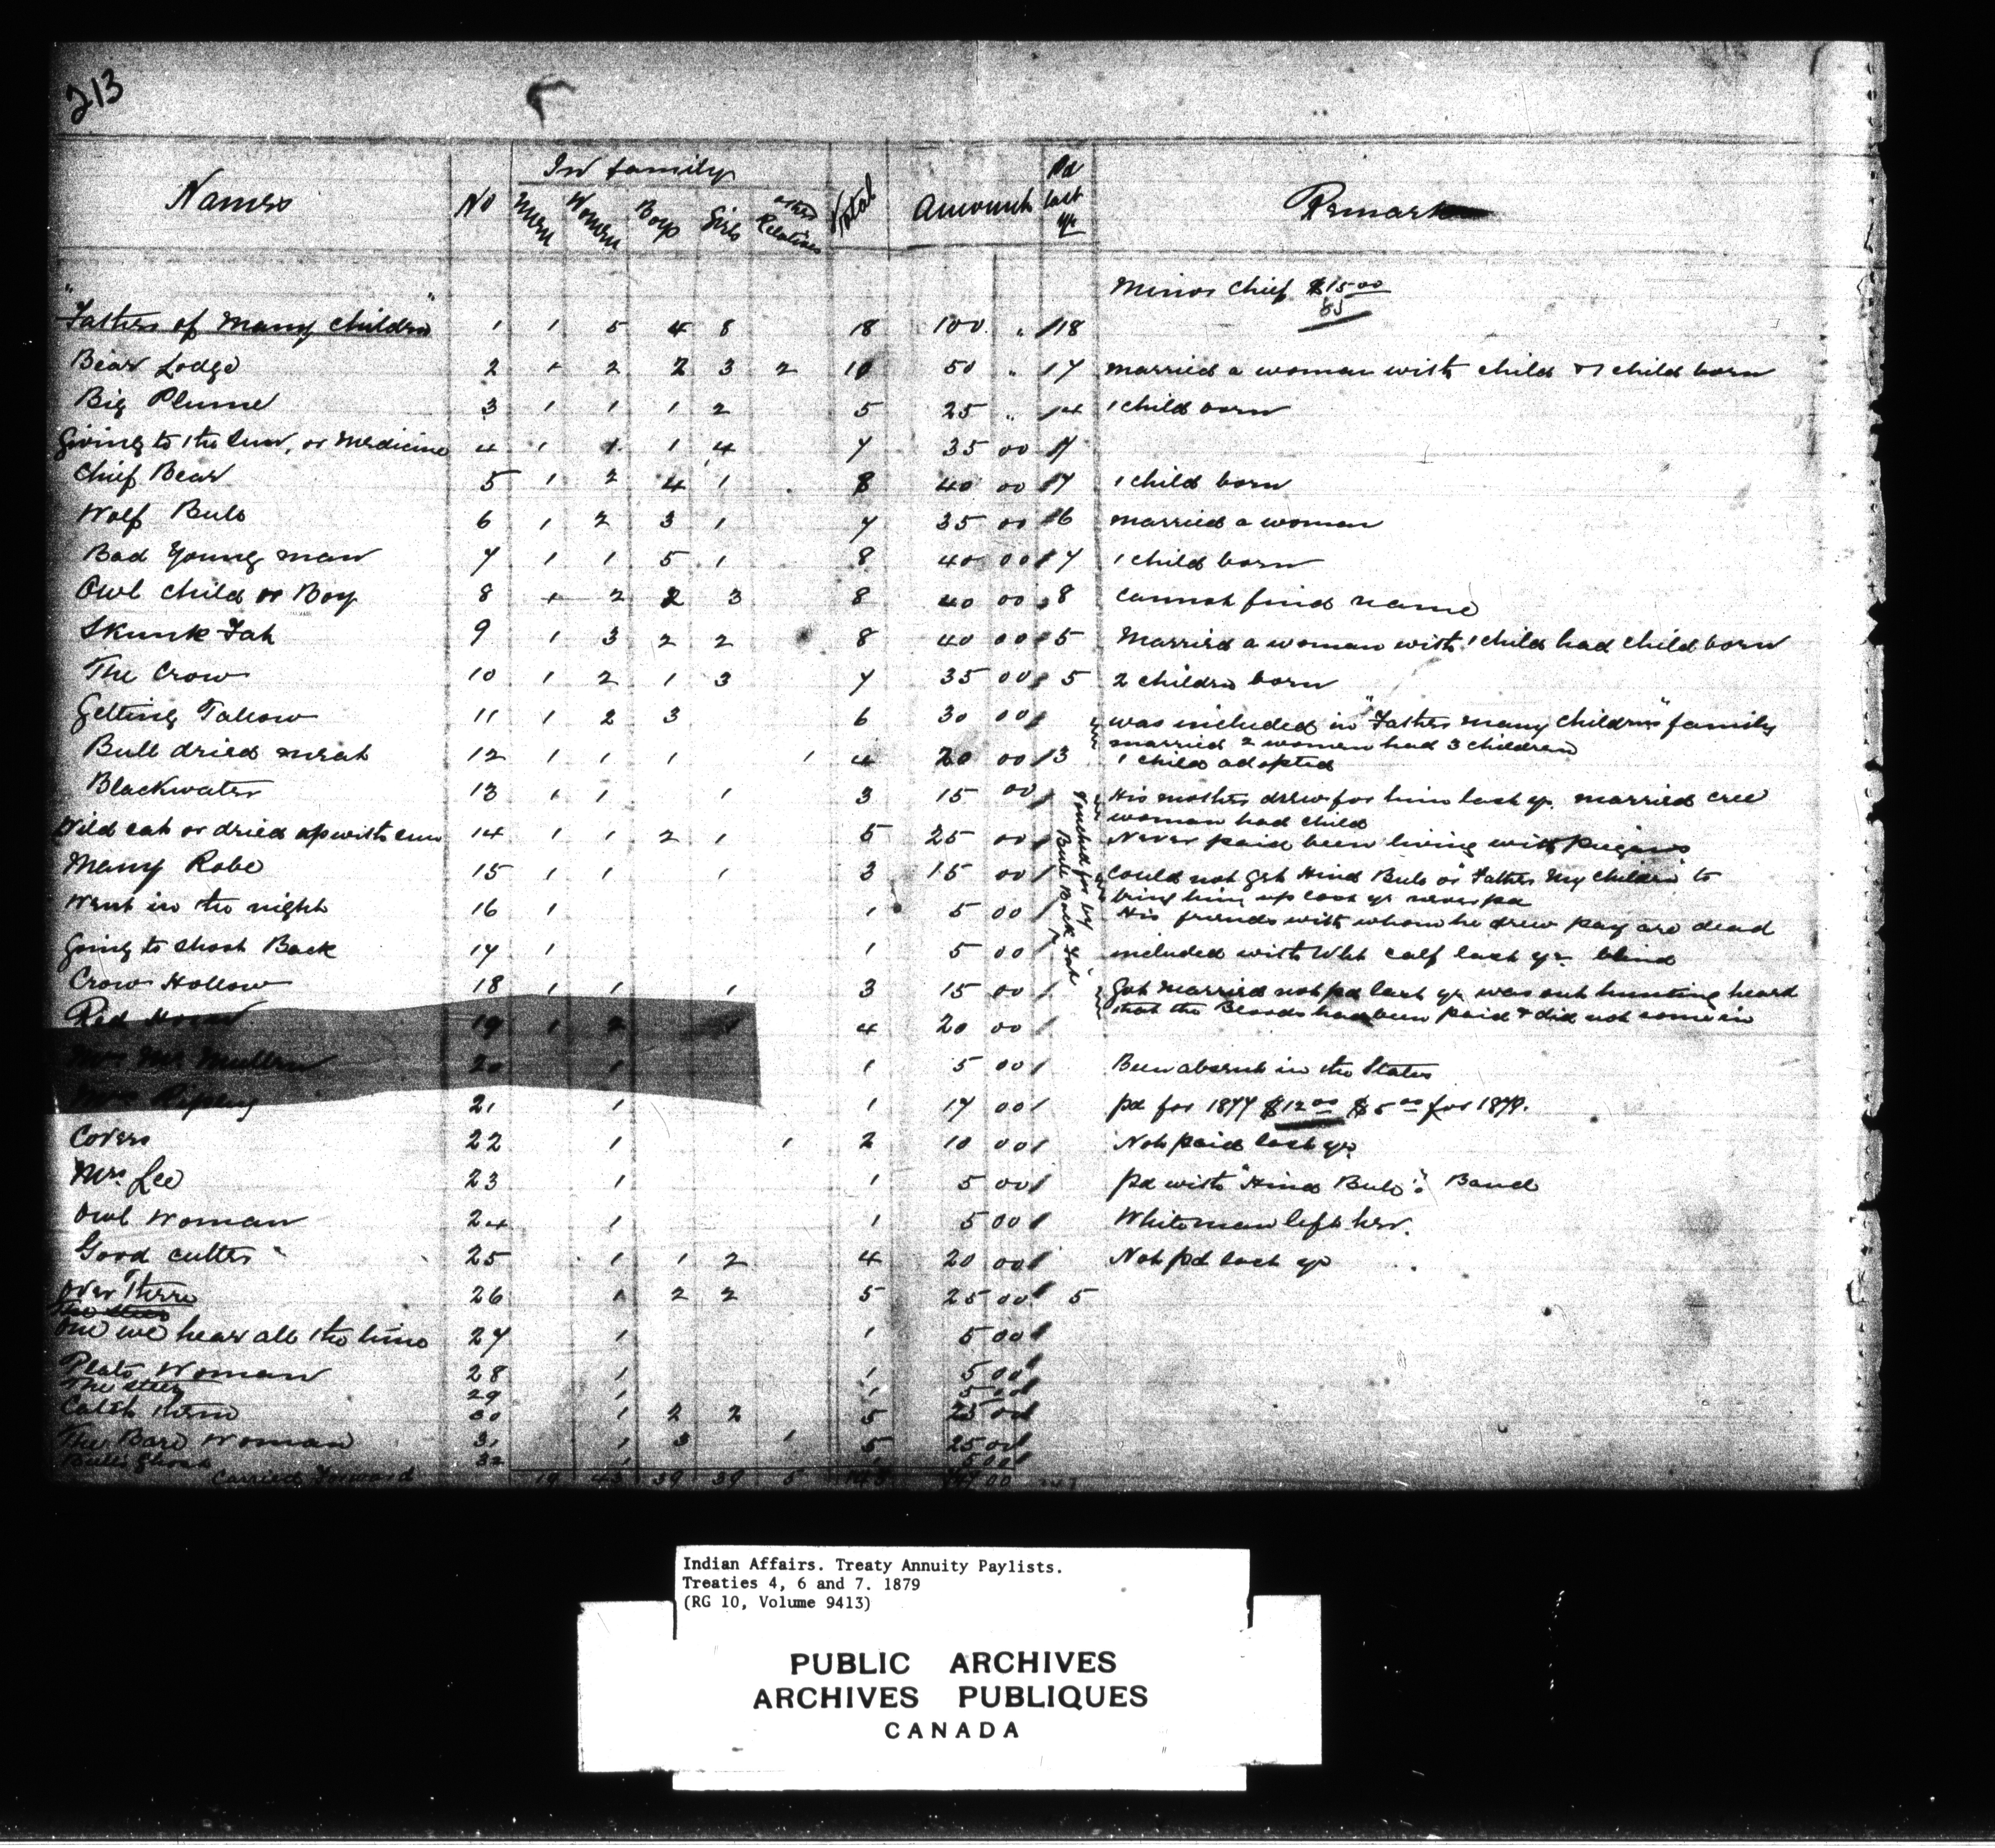 213
Names No In family Total Amount Pd last yr Remarks
Men Women Boys Girls other Relatives
Minor Chief $15.00
85
"Father of Many Children" 1 1 5 4 8 18 100 " 18
Bear Lodge 2 1 2 2 3 2 10 50 " 7 married a woman with child & 1 child born
Big Plume 3 1 1 1 2 5 25 " 4 1 child born
Giving to the Sun, or Medicine 4 1 1 1 4 7 35 00 7
Chief Bear 5 1 2 4 1 8 40 00 7 1 child born
Wolf Bull 6 1 2 3 1 7 35 00 6 married a woman
Bad Young man 7 1 1 5 1 8 40 00 7 1 child born
Owl Child or Boy 8 1 2 2 3 8 40 00 8 cannot find name
Skunk Fat 9 1 3 2 2 8 40 00 5 Married a woman with 1 child had child born
The Crow 10 1 2 1 3 7 35 00 5 2 children born
Getting Tallow 11 1 2 3 6 30 00 was included in "Father many children" family
married 2 women had 3 children
Bull dried meat 12 1 1 1 1 4 20 00 3 1 child adopted
Blackwater 13 1 1 1 3 15 00 His mother drew for him last yr. married cree
woman had child
Wild cat or dried up with sun 14 1 1 2 1 5 25 00 Never paid been living with Peigans
Many Robe 15 1 1 1 3 15 00 Could not get Hind Bull or "Father My children" to
bring him up last yr never pd
Went in the night 16 1 1 5 00 His friends with whom he drew pay are dead
Going to Shoot Back 17 1 1 5 00 included with Wht calf last yr. blind
Vouched for by
Bull Back Fat
Crow Hollow 18 1 1 1 3 15 00 Got married not pd last yr was out hunting heard
that the Bloods had been paid & did not come in
Red Horn 19 1 2 1 4 20 00
Mrs McMullen 20 1 1 5 00 Been absent in the States
Mrs Ripling 21 1 1 17 00 pd for 1877 $12.00 $5.00 for 1878.
Covers 22 1 1 2 10 00 Not paid last yr.
Mrs. Lee 23 1 1 5 00 pd with "Hind Bull": Band
Owl Woman 24 1 1 5 00 Whiteman left her.
Good cutter 25 1 1 2 4 20 00 Not pd last yr
Over There 26 1 2 2 5 25 00 5
One we hear all the time 27 1 1 5 00
Woman 28 1 1 5 00
The Steer 29 1 1 5 00
Catch them 30 1 2 2 5 25 00
The Bare Woman 31 1 3 1 5 25 00
Bulls Ghost 32 1 1 5 00
Carried Forward 19 43 39 39 5
Indian Affairs. Treaty Annuity Paylists.
Treaties 4, 6 and 7. 1879
(RG 10, Volume 9413)
PUBLIC ARCHIVES
ARCHIVES PUBLIQUES
CANADA